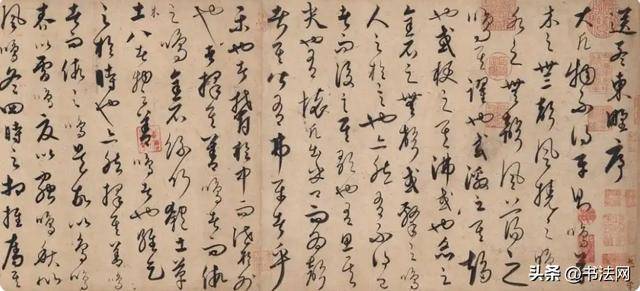 送孟東野序
大凡物不得平則鳴草
木之無聲風撓之鳴
水之無聲風蕩之
鳴其躍也或激之其趨
也或梗之其沸也或炙之
金石之無聲或擊之鳴
人之於言也亦然有不得已
者而後言其歌也有思其
哭也有懷凡出乎口而為聲
者其皆有弗平者乎
樂也者鬱於中而泄於外
也者擇其善鳴者而假
之鳴金石絲竹匏土革
木八者物之善鳴者也維天
之於時也亦然擇其善鳴
者而假之鳴是故以鳥鳴
春以雷鳴夏以蟲鳴秋以
風鳴冬四時之相推奪其
头条 @书法网